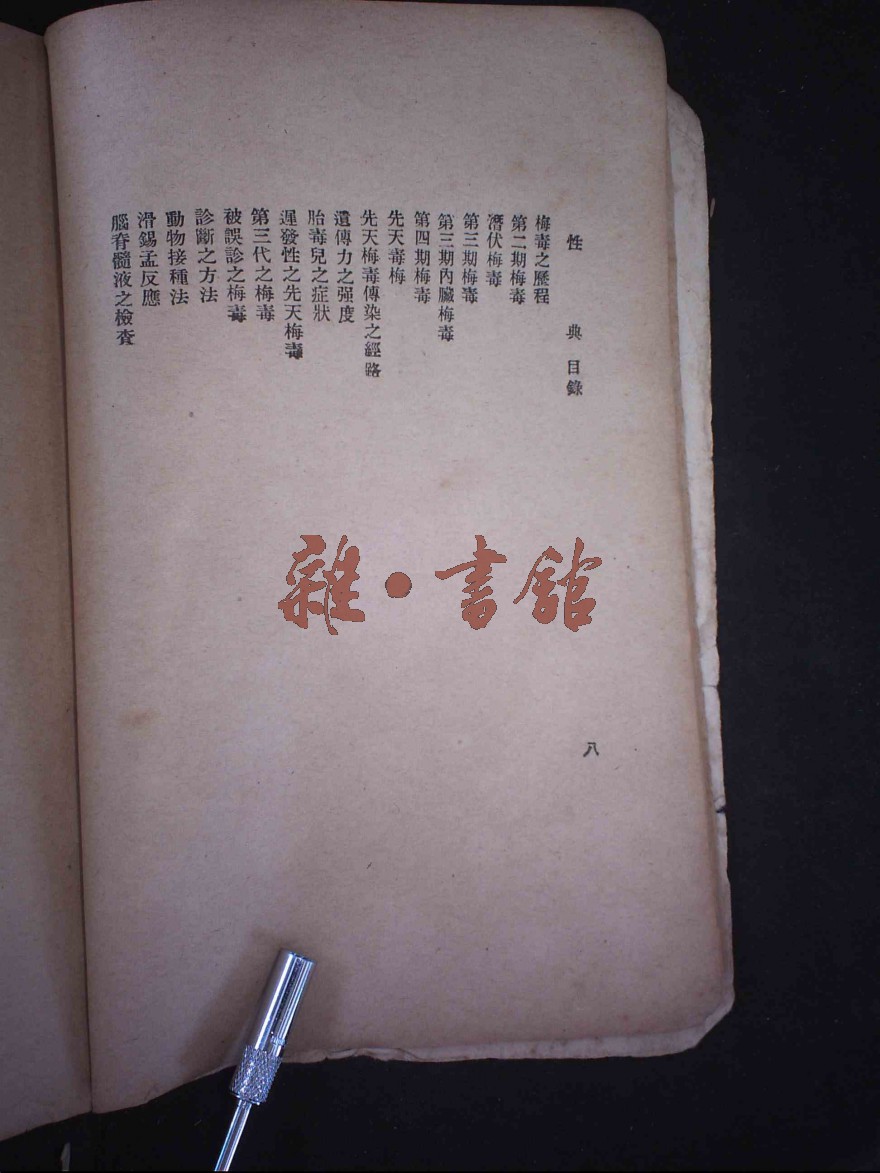 性典目錄
梅毒之歷程
第二期梅毒
潛伏梅毒
第三期梅毒
第三期內臟梅毒
第四期梅毒
先天毒梅
先天梅毒傳染之經路
遺傳力之强度
胎毒兒之症狀
遲發性之先天梅毒
第三代之梅毒
被誤診之梅毒
診斷之方法
動物接種法
滑錫孟反應
腦脊髓液之檢査
八
雜·書館